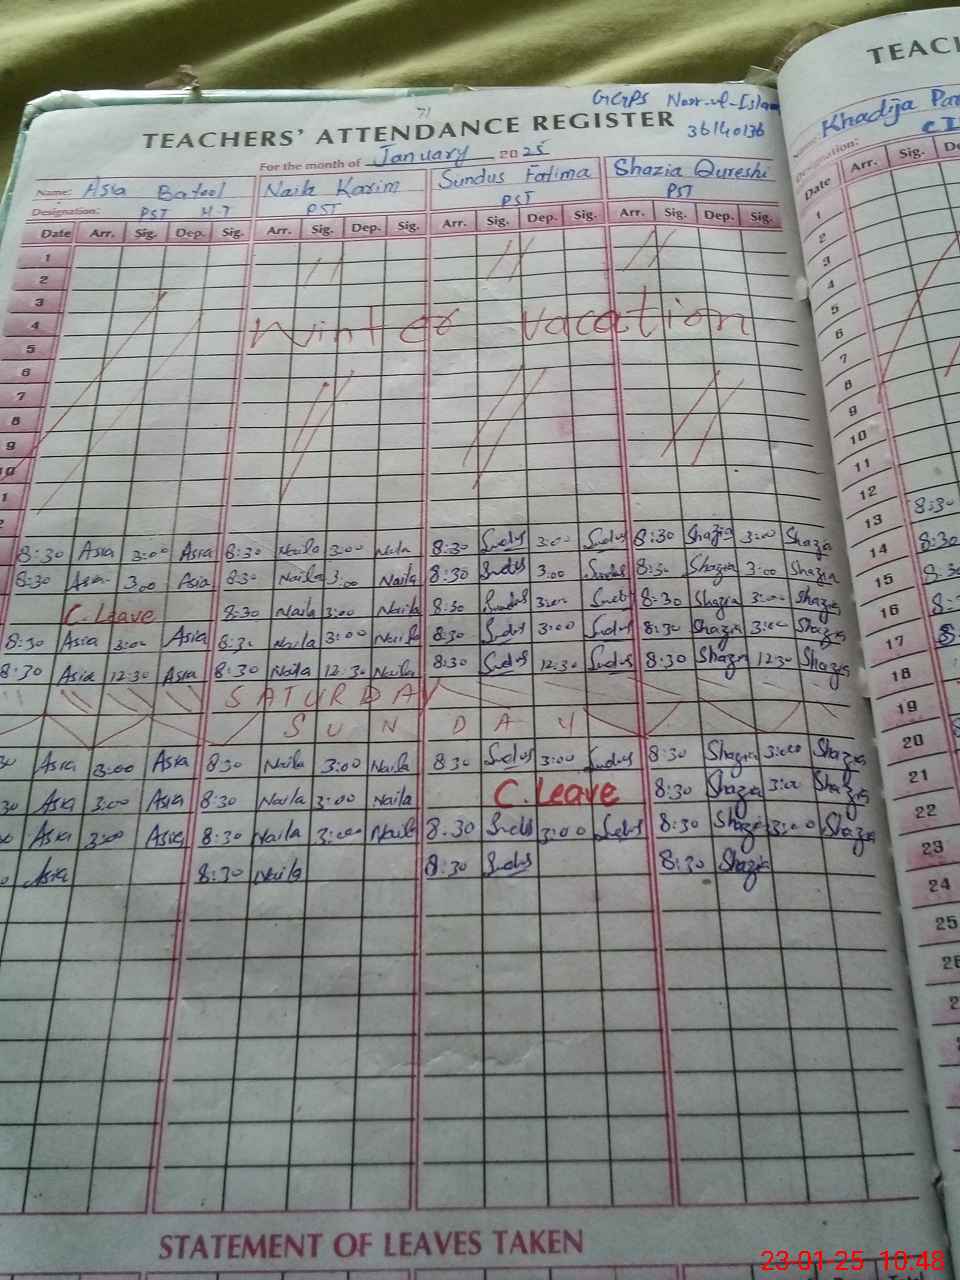 TEACH
71
GGPS Noor-ul-Islam
TEACHERS' ATTENDANCE REGISTER 36140136
Khadija Par
For the month of January 2025
Name: Asia Batool Naila Karim Sundus Fatima Shazia Qureshi
Designation: PST H.T PST PST PST
Designation:
Date Arr. Sig. Dep. Sig. Arr. Sig. Dep. Sig. Arr. Sig. Dep. Sig. Arr. Sig. Dep. Sig.
Date Arr. Sig. De
1
2
3
4
Winter vacation
5
6
7
8
9
10
1
2
8:30 Asia 3:00 Asia 8:30 Naila 3:00 Naila 8:30 Sundus 3:00 Sundus 8:30 Shazia 3:00 Shazia
8:30 Asia 3:00 Asia 8:30 Naila 3:00 Naila 8:30 Sundus 3:00 Sundus 8:30 Shazia 3:00 Shazia
C.Leave 8:30 Naila 3:00 Naila 8:30 Sundus 3:00 Sundus 8:30 Shazia 3:00 Shazia
8:30 Asia 3:00 Asia 8:30 Naila 3:00 Naila 8:30 Sundus 3:00 Sundus 8:30 Shazia 3:00 Shazia
8:30 Asia 12:30 Asia 8:30 Naila 12:30 Naila 8:30 Sundus 12:30 Sundus 8:30 Shazia 12:30 Shazia
SATURDAY
SUNDAY
30 Asia 3:00 Asia 8:30 Naila 3:00 Naila 8:30 Sundus 3:00 Sundus 8:30 Shazia 3:00 Shazia
30 Asia 3:00 Asia 8:30 Naila 3:00 Naila C.Leave 8:30 Shazia 3:00 Shazia
0 Asia 3:00 Asia 8:30 Naila 3:00 Naila 8:30 Sundus 3:00 Sundus 8:30 Shazia 3:00 Shazia
0 Asia 8:30 Naila 8:30 Sundus 8:30 Shazia
1
2
3
4
5
6
7
8
9
10
11
12
13 8:30
14 8:30
15 8:30
16
17
18
19
20
21
22
23
24
25
26
STATEMENT OF LEAVES TAKEN
23-01-25 10:48